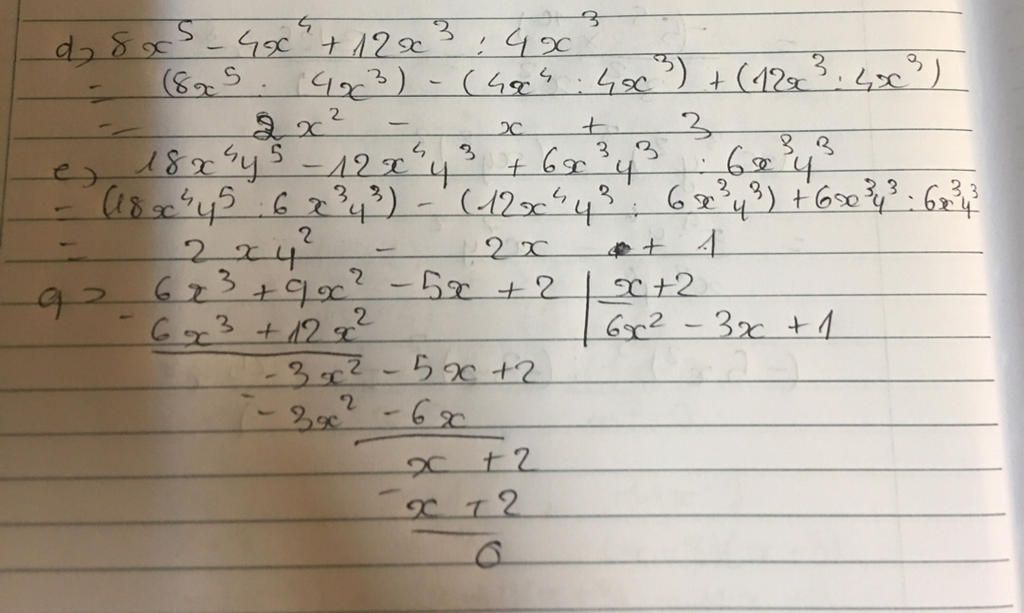 d, 8x⁵ - 4x⁴ + 12x³ : 4x³
= (8x⁵ : 4x³) - (4x⁴ : 4x³) + (12x³ : 4x³)
= 2x² - x + 3
e, 18x⁴y⁵ - 12x⁴y³ + 6x³y³ : 6x³y³
= (18x⁴y⁵ : 6x³y³) - (12x⁴y³ : 6x³y³) + 6x³y³ : 6x³y³
= 2xy² - 2x + 1
g, 6x³ + 9x² - 5x + 2 | x + 2
- 6x³ + 12x² | 6x² - 3x + 1
- 3x² - 5x + 2
- - 3x² - 6x
x + 2
- x + 2
0